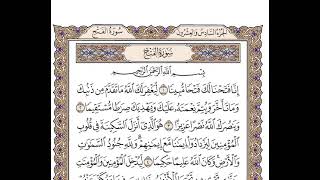 سُورَةُ الفَتْحِ
الجُزْءُ السَّادِسُ وَالعِشْرُونَ
سُورَةُ الفَتْحِ
بِسْمِ اللَّهِ الرَّحْمَٰنِ الرَّحِيمِ
إِنَّا فَتَحْنَا لَكَ فَتْحًا مُّبِينًا ١ لِّيَغْفِرَ لَكَ اللَّهُ مَا تَقَدَّمَ مِن ذَنۢبِكَ
وَمَا تَأَخَّرَ وَيُتِمَّ نِعْمَتَهُۥ عَلَيْكَ وَيَهْدِيَكَ صِرَٰطًا مُّسْتَقِيمًا ٢
وَيَنصُرَكَ اللَّهُ نَصْرًا عَزِيزًا ٣ هُوَ الَّذِىٓ أَنزَلَ السَّكِينَةَ فِى قُلُوبِ
الْمُؤْمِنِينَ لِيَزْدَادُوٓا۟ إِيمَٰنًا مَّعَ إِيمَٰنِهِمْ ۗ وَلِلَّهِ جُنُودُ السَّمَٰوَٰتِ
وَالْأَرْضِ ۚ وَكَانَ اللَّهُ عَلِيمًا حَكِيمًا ٤ لِّيُدْخِلَ الْمُؤْمِنِينَ وَالْمُؤْمِنَٰتِ